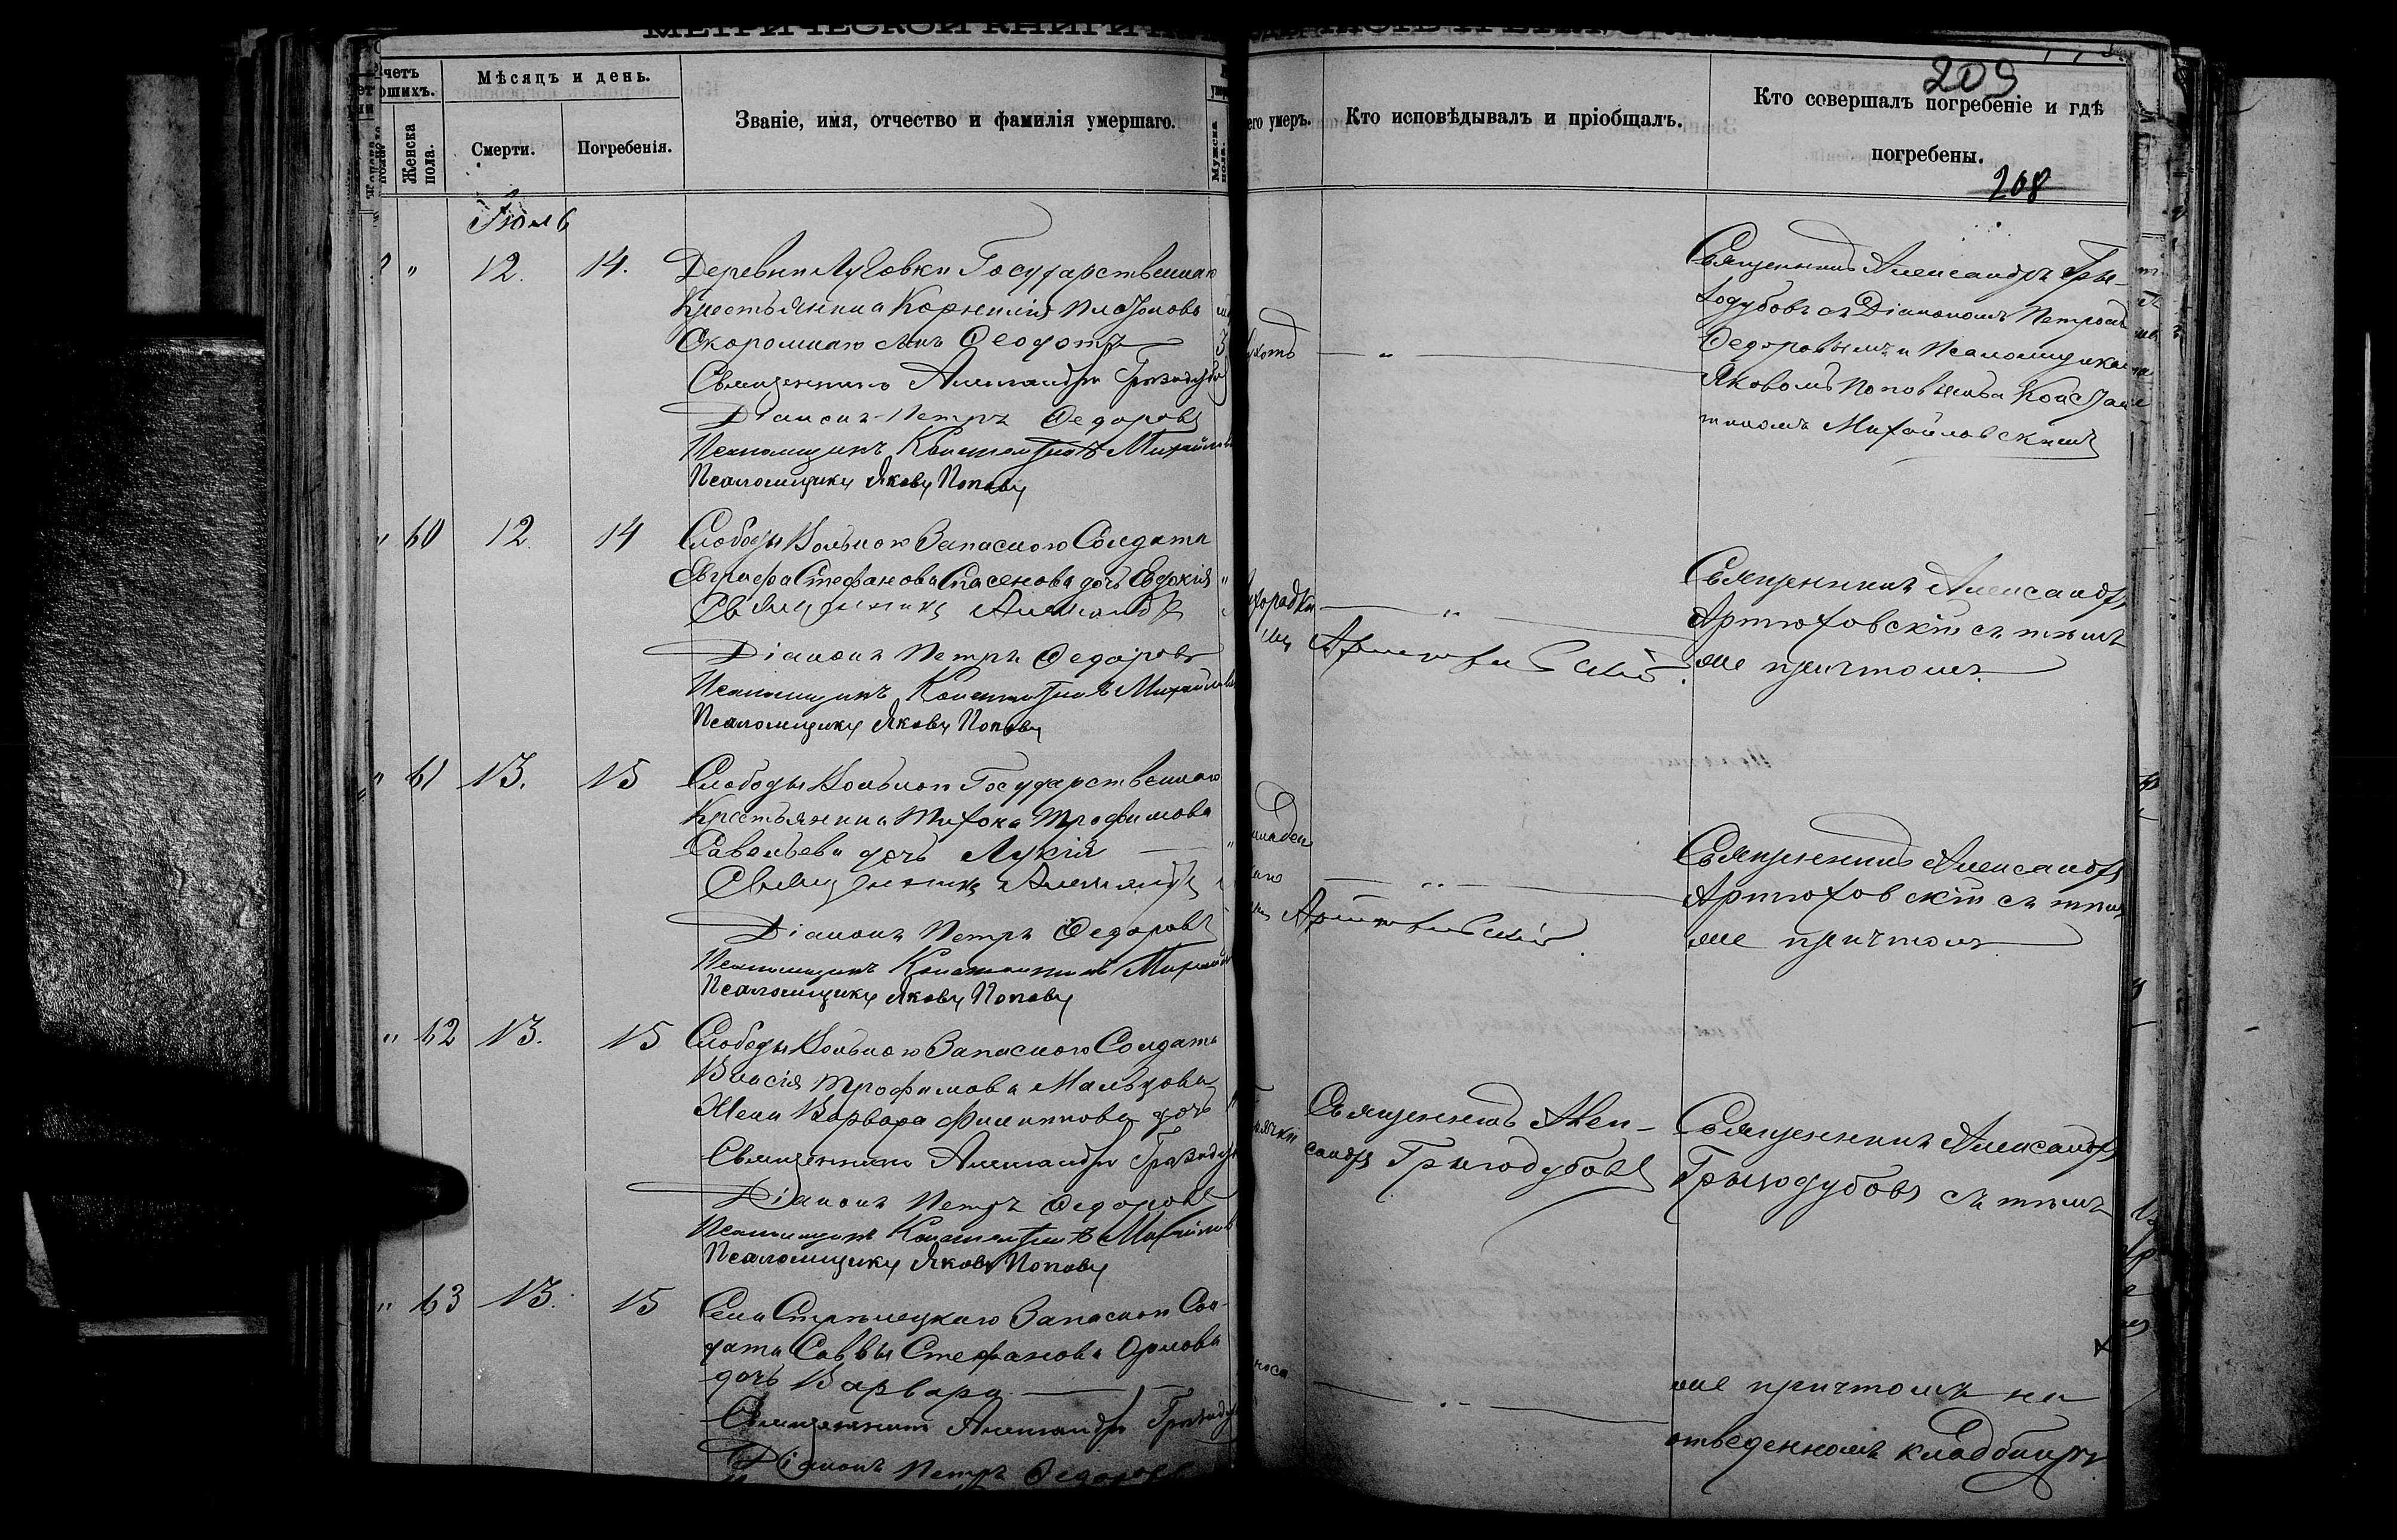 Мѣсяцъ и день.
Женска пола.
Смерти.
Погребенія.
Званіе, имя, отчество и фамилія умершаго.
Мужска пола.
его умеръ.
Кто исповѣдывалъ и пріобщалъ.
Кто совершалъ погребеніе и гдѣ
погребены.
209
208
Іюль
" 12. 14.
Деревни Луговки Государственнаго
Крестьянина Корнилія Платонова
сынъ Ѳеодотъ
Священникъ Александръ
Діаконъ Петръ Ѳедоровъ
Псаломщикъ Константинъ
Псаломщикъ Яковъ Поповъ
Священникъ Александръ Гры-
зодубовъ съ Діакономъ Петромъ
Ѳедоровымъ и Псаломщиками
Яковомъ Поповымъ и Констан
тиномъ Михайловскимъ
" 60 12. 14
Слободы Вольной Запаснаго Солдата
Евграфа Стефанова дочь Евдокія
Священникъ Александръ Артюховскій.
Діаконъ Петръ Ѳедоровъ
Псаломщикъ Константинъ
Псаломщикъ Яковъ Поповъ
Священникъ Александръ
Артюховскій съ тѣмъ
же причтомъ.
" 61 13. 15
Слободы Вольной Государственнаго
Крестьянина Тихона Трофимова
Савельева дочь Лукія
Священникъ Александръ Артюховскій.
Діаконъ Петръ Ѳедоровъ
Псаломщикъ Константинъ
Псаломщикъ Яковъ Поповъ
Священникъ Александръ
Артюховскій съ тѣмъ
же причтомъ
" 62 13. 15
Слободы Вольной Запаснаго Солдата
Власія Трофимова Мальцова
Жена Варвара Филиппова дочь
Священникъ Александръ
Діаконъ Петръ Ѳедоровъ
Псаломщикъ Константинъ
Псаломщикъ Яковъ Поповъ
Священникъ Алек-
сандръ Грызодубовъ
Священникъ Александръ
Грызодубовъ съ тѣмъ
" 63 13. 15
Села Стрѣлецкаго Запаснаго Сол-
дата Саввы Стефанова Орлова
дочь Варвара
Священникъ Александръ
Діаконъ Петръ Ѳедоровъ
же причтомъ на
отведенномъ кладбищѣ